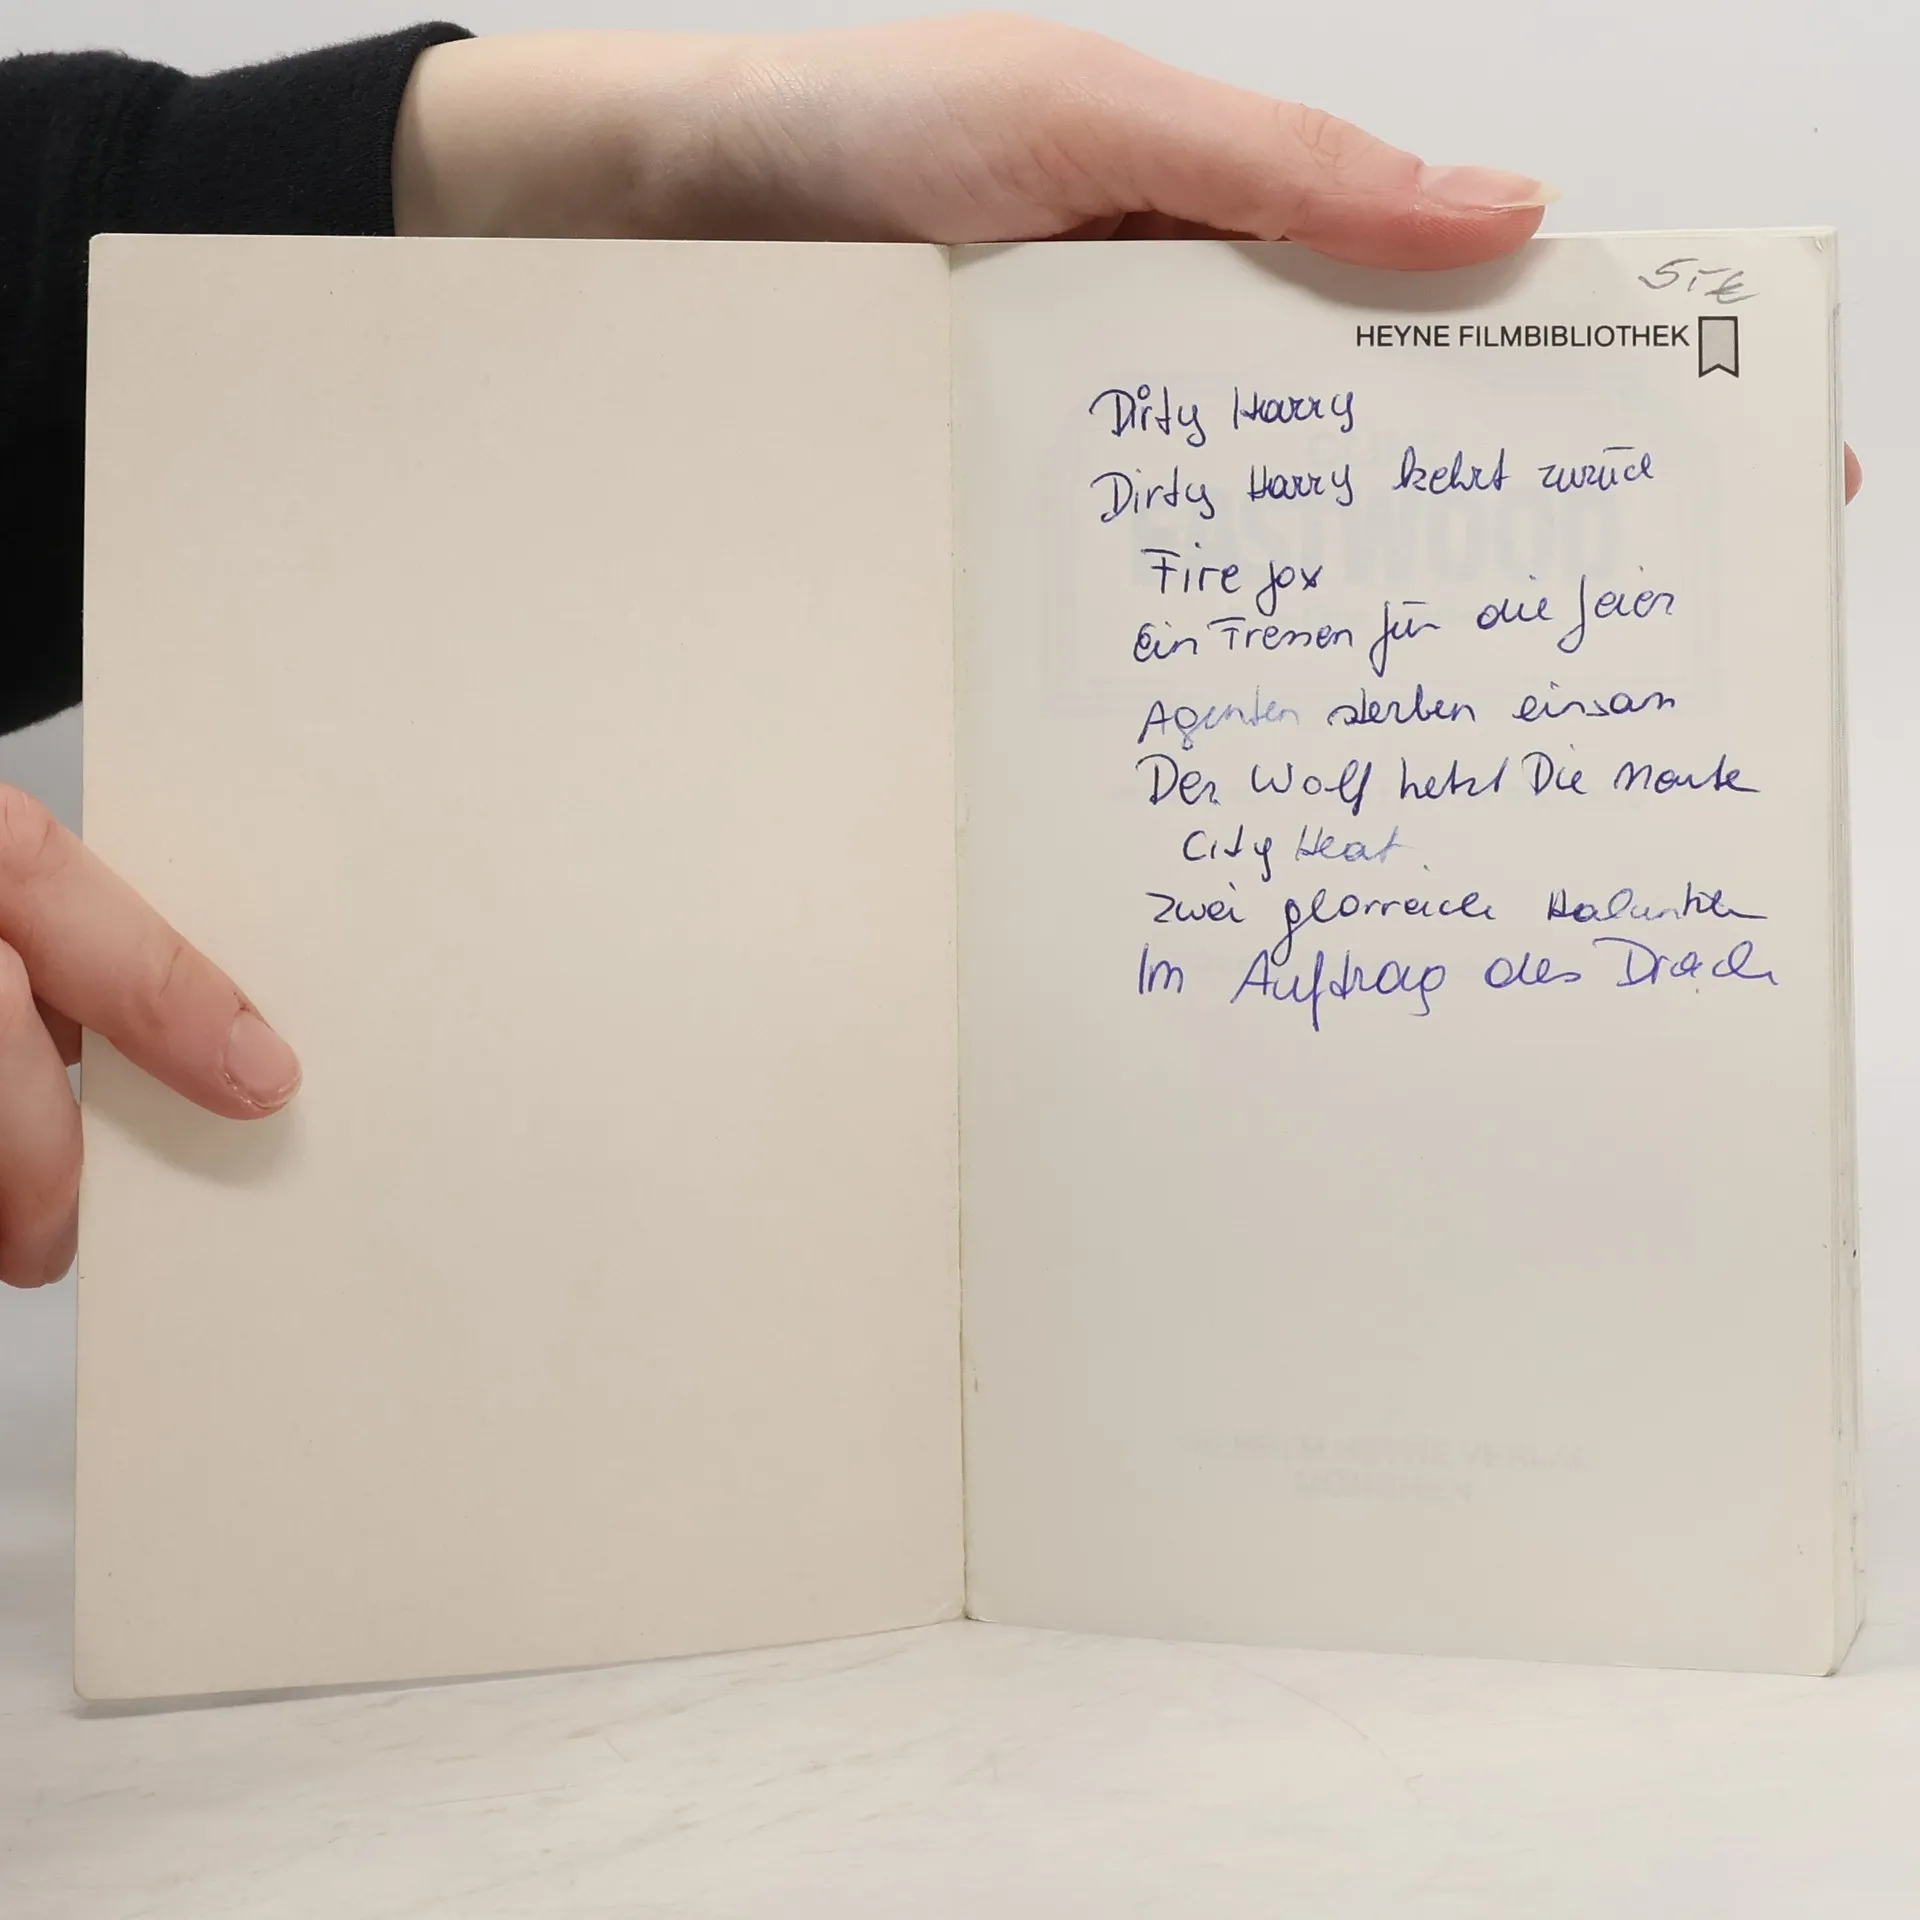 5,-€
HEYNE FILMBIBLIOTHEK
Dirty Harry
Dirty Harry kehrt zurück
Fire fox
Ein Fressen für die Geier
Agenten sterben einsam
Der Wolf hetzt Die Meute
City Heat.
Zwei glorreiche Halunken
Im Auftrag des Drachen
EASTWOOD
WILHELM HEYNE VERLAG
MÜNCHEN